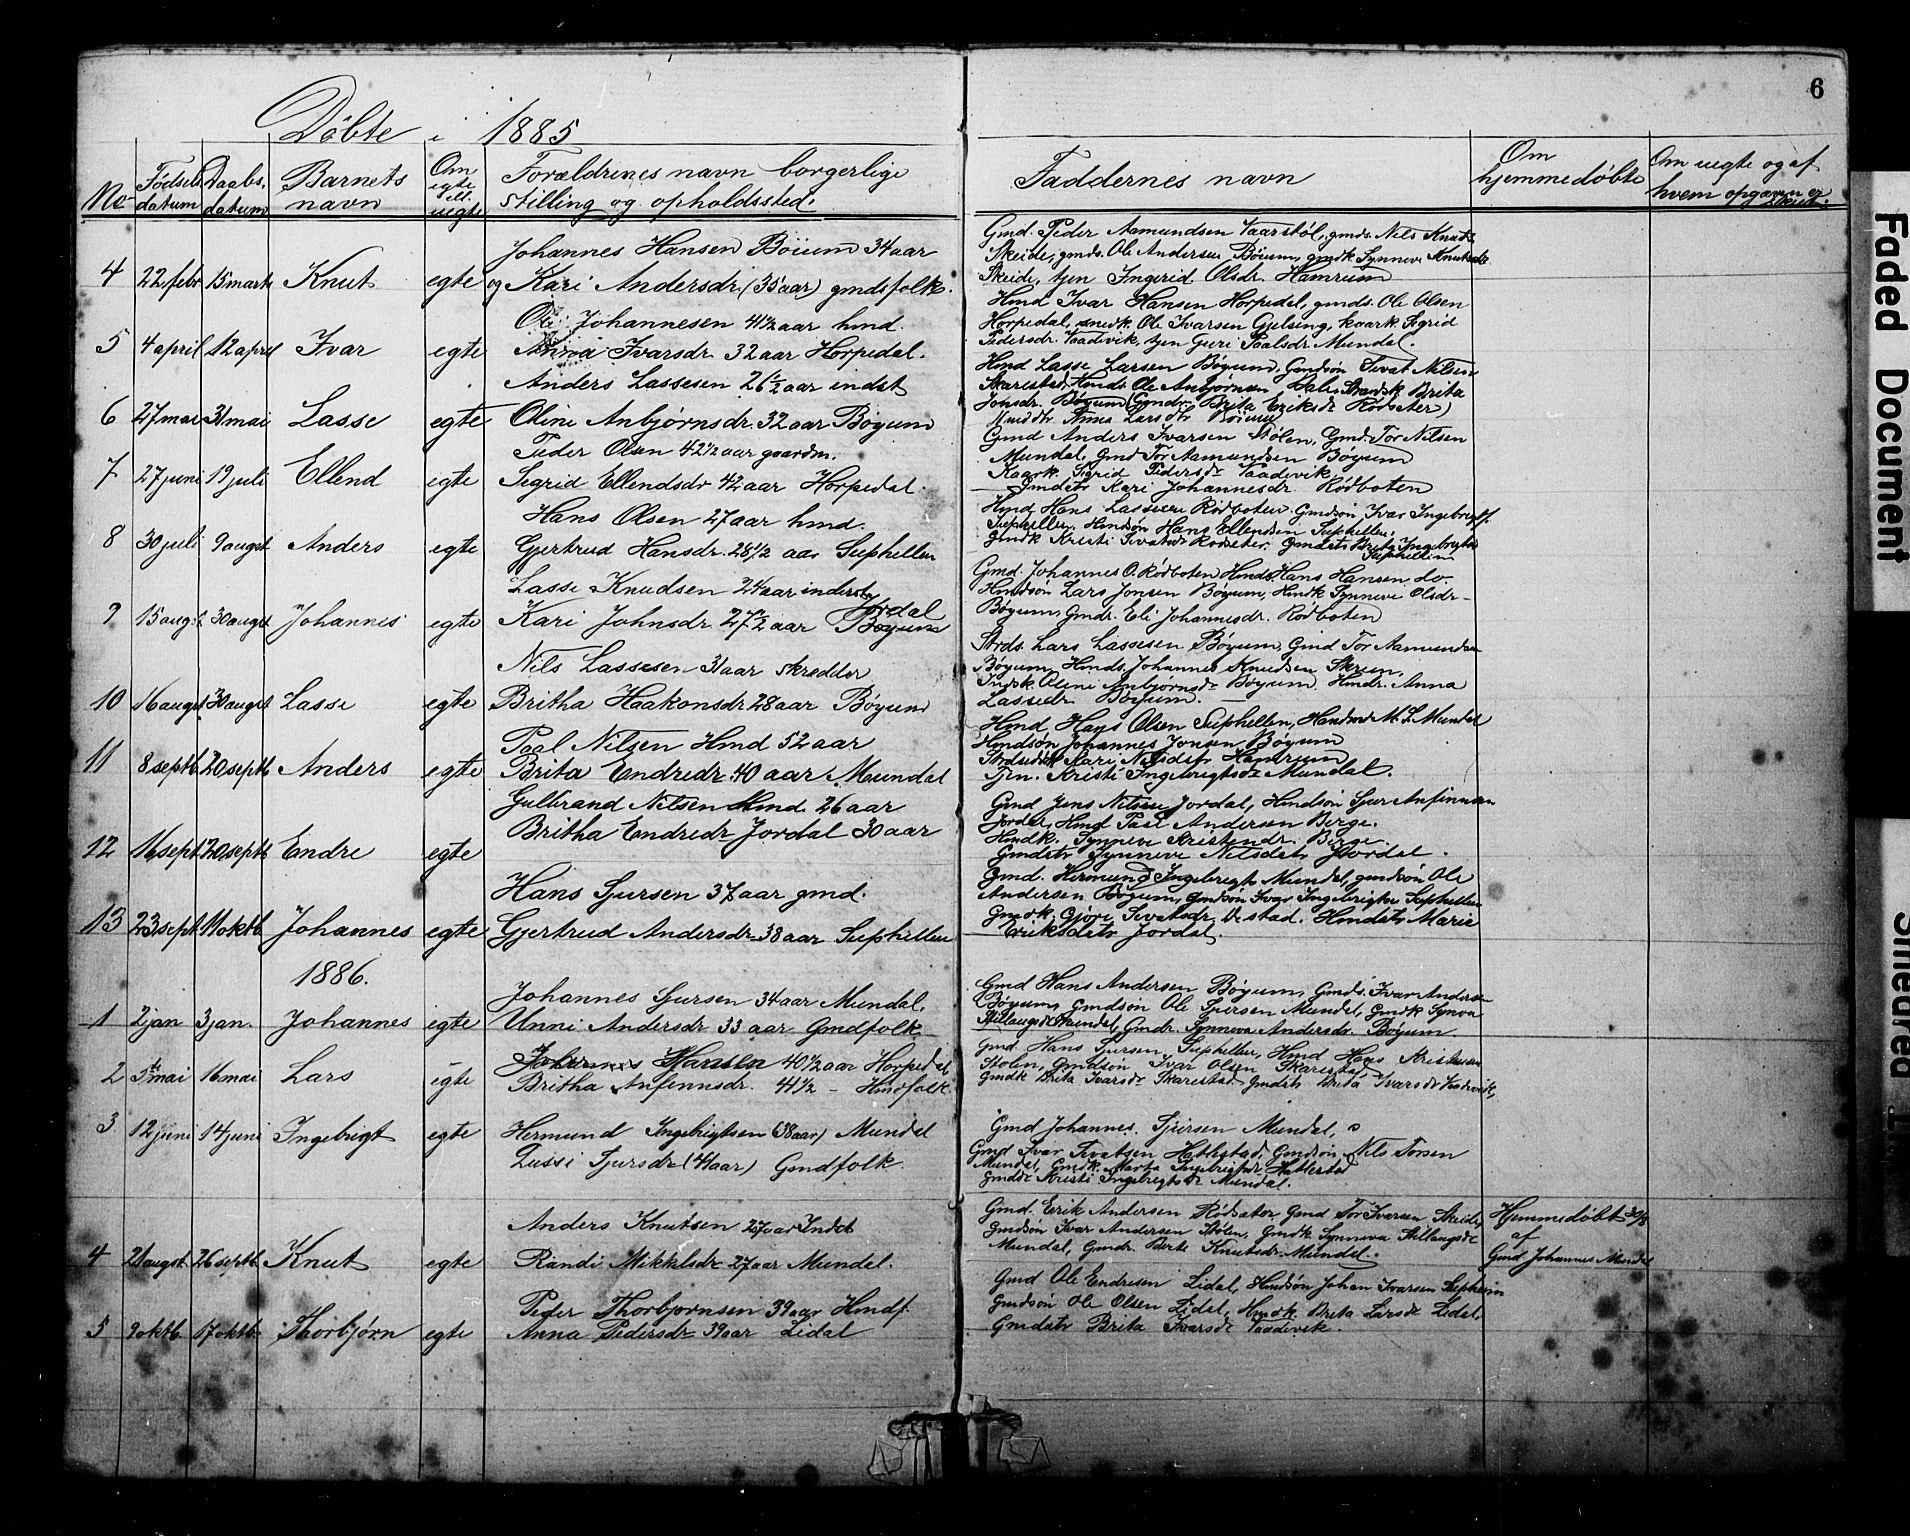 6
Döbte i 1885
No Fødsels datum Daabs. datum Barnets navn Om egte ell. uegte Forældrenes navn borgerlige stilling og opholdssted.
Faddernes navn Om hjemmedöbte Om uegte og af hvem opgaven er
Johannes Hansen Böium 34 aar
4 22 febr 15 marts Knut egte og Kari Andersdr. (35 aar) gmdsfolk.
Gmd. Peder Aamundsen Vaarstöl, gmds. Nils Knuts.
Skeide, gmds. Ole Andersen Böium, gmdk Synneve Knutsdr
Skeide, tjen Ingerid Olsdr. Hamrum
Ole Johannesen 41 1/2 aar hmd.
5 4 april 12 april Ivar egte Anna Ivarsdr 32 aar Horpedal.
Hmd Ivar Hansen Horpedal, gmds. Ole Olsen
Horpedal, smedk. Ole Ivarsen Gjelsing, kaark. Sigrid
Pedersdr. Vaadevik, tjen Guri Paalsdr Mundal.
Anders Lassesen 26 1/2 aar indst
6 27 mai 31 mai Lasse egte Oline Anbjørnsdr. 32 aar Bøyum
Hmd Lasse Larsen Bøyum, Gmdsön Sivat Nilsen
Skarestad, Hmds Ole Anbjørnsen Brita
Jonsdr. Bøyum (Gmdr. Brita Eriksdr Rödseter)
Anna Larsdtr Böium
Peder Olsen 42 1/2 aar gaardm.
7 27 juni 19 juli Ellend egte Segrid Ellendsdr 42 aar Horpedal.
Gmd Anders Ivarsen Stølen, Gmd. Tor Nilsen
Mundal, Gmd Tor Aamundsen Bøyum
Kaark. Sigrid Pedersdr Vaadevik,
Gmdstr Kari Johannesdr. Rødboten
Hans Olsen 27 aar hmd.
8 30 juli 9 augst Anders egte Gjertrud Hansdr. 28 1/2 aar Suphellen
Hmd Hans Lassesen Rødboten. Gmdsön Ivar Ingebregts.
Suphellen. Hmdsön Hans Ellendsen Suphellen.
Gmdk Kristi Sivatsdr Rødseter, Gmdstr Brita Ingebrigtsdr
Suphellen
Lasse Knudsen 24 aar inderst
Jordal
9 15 augst 30 augst Johannes egte Kari Johnsdr. 27 1/2 aar Bøyum
Gmd. Johannes O. Rødboten, Hmds Hans Hansen do.
Hmdsön Lars Jonsen Bøyum, Hmdk Synneve Olsdr.
Bøyum, Gmdr. Eli Johannesdr. Rødboten
Nils Lassesen 31 aar skredder
10 16 augst 30 augst Lasse egte Britha Haakonsdr. 28 aar Bøyum
Strds. Lars Lassesen Bøyum, Gmd Tor Aamundsen
Bøyum, Hmds. Johannes Knudsen Skrum,
Indsk. Oline Anbjørnsdr Bøyum, Hmdr. Anna
Lassedr. Bøyum.
Paal Nilsen Hmd 52 aar
11 8 septb. 20 septb Anders egte Brita Endredr. 40 aar Mundal
Hmd Hans Olsen Suphellen, M. L. Mundal
Hmdsön Johannes Jonsen Bøyum
Kari Nilsdtr Hamrum
Tjen. Kristi Ingebrigtsdr Mundal.
Gulbrand Nilsen Hmd. 26 aar
Britha Endredr Jordal 30 aar
12 16 sept 20 septb Endre egte
Gmd Jens Nilsen Jordal, Hmdsön Sjur Anfinnsen
Jordal, Hmd Paal Andersen Berge.
Hmdk. Synneve Kristendr. Berge.
Gmdstr Synneve Nilsdatr Jordal.
Hans Sjursen 37 aar gmd.
13 23 sept 11 oktb. Johannes egte Gjertrud Andersdr 38 aar Suphellen
Gmd. Hermund Ingebregts Mundal, gmdsön Ole
Andersen Bøyum, Gmdsön Ivar Ingebrigtsen Suphellen
Gmdk. Gjöri Sivatsdr. Hmdstr Marie
Eriksdatr Jordal.
1886.
Johannes Sjursen 34 aar Mundal,
1 2 jan 3 jan. Johannes egte Unni Andersdr 33 aar Gmdfolk
Gmd Hans Andersen Bøyum, Gmds. Ivar Andersen
Bøyum, Gmdsön Ole Sjursen Mundal, Gmdk Synva
Stillaugsdr Mundal, Gmdr. Synneva Andersdr Bøyum
Johannes Hansen 40 1/2 aar Horpedal,
2 5te mai 16 mai Lars egte Britha Anfinnsdr. 41 1/2 – Hmdfolk
Gmd. Hans Sjursen Suphellen, Hmd Hans Kristensen
Stölen, Gmdsön Ivar Olsen Skarestad
Gmdk Brita Ivarsdr Skarestad Gmdstr Brita Ivarsdr Vaadevik,
3 12 juni 14 juni Ingebrigt egte Hermund Ingebrigtsen (38 aar) Mundal
Lussi Sjursdr (41 aar) Gmdfolk.
Gmd Johannes Sjursen Mundal,
Gmd Ivar Sivatsen Hatlestad, Gmdsön Nils Torsen
Mundal, Gmdk. Marta Ingebrigtsdr Hatlestad
Gmddr Kristi Ingebregtsdr Mundal.
Anders Knutsen 27 aar Indst
4 21 augst 26 septb. Knut egte Randi Mikkelsdr 27 aar Mundal.
Gmd. Erik Andersen Rödseter Gmd Tor Ivarsen Skeide,
Gmdsön Ivar Andersen Stölen, Gmdk Synneva Stillaugsdr
Mundal, Gmdr. Berte Knutsdr. Mundal.
Hjemmedöbt 30/8
af
Gmd. Johannes Mundal
Peder Thorbjørnsen 39 aar Hmdf.
5 9 oktb. 17 oktb Thorbjørn egte Anna Pedersdr 39 aar Lidal
Gmd Ole Endresen Lidal, Hmdsön Johan Ivarsen
Gmdsön Ole Olsen Lidal, Hmdk. Brita Larsdr Lidal,
Gmdstr Brita Ivarsdr Vaadevik.
Faded Document
Smeared